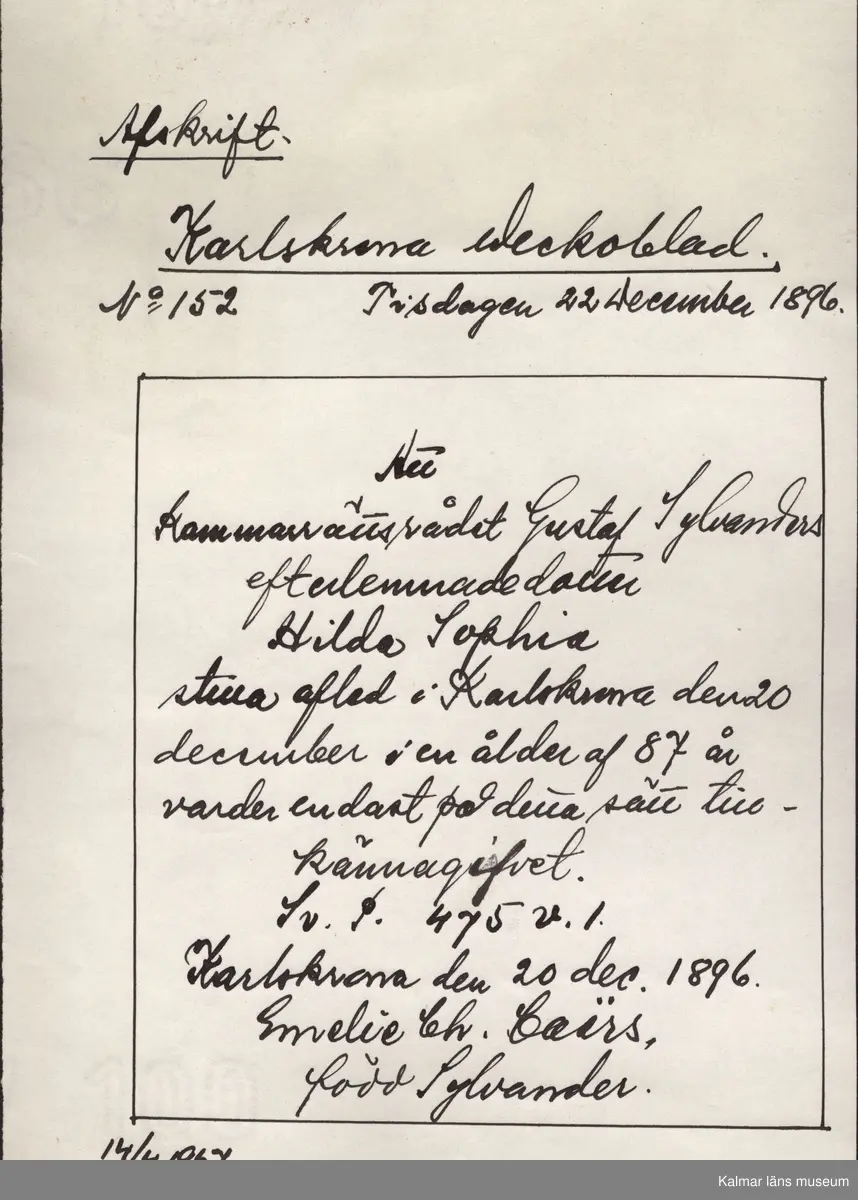 Afskrift.
Karlskrona Weckoblad.
No 152 Tisdagen 22 December 1896.
Att
Kammarrättsrådet Gustaf Sylvanders
efterlemnade dotter
Hilda Sophia
stilla afled i Karlskrona den 20
december i en ålder af 87 år
varder endast på detta sätt till-
kännagifvet.
Sv. P. 475 v. 1.
Karlskrona den 20 dec. 1896.
Emelie Ch. Caërs,
född Sylvander.
Kalmar läns museum